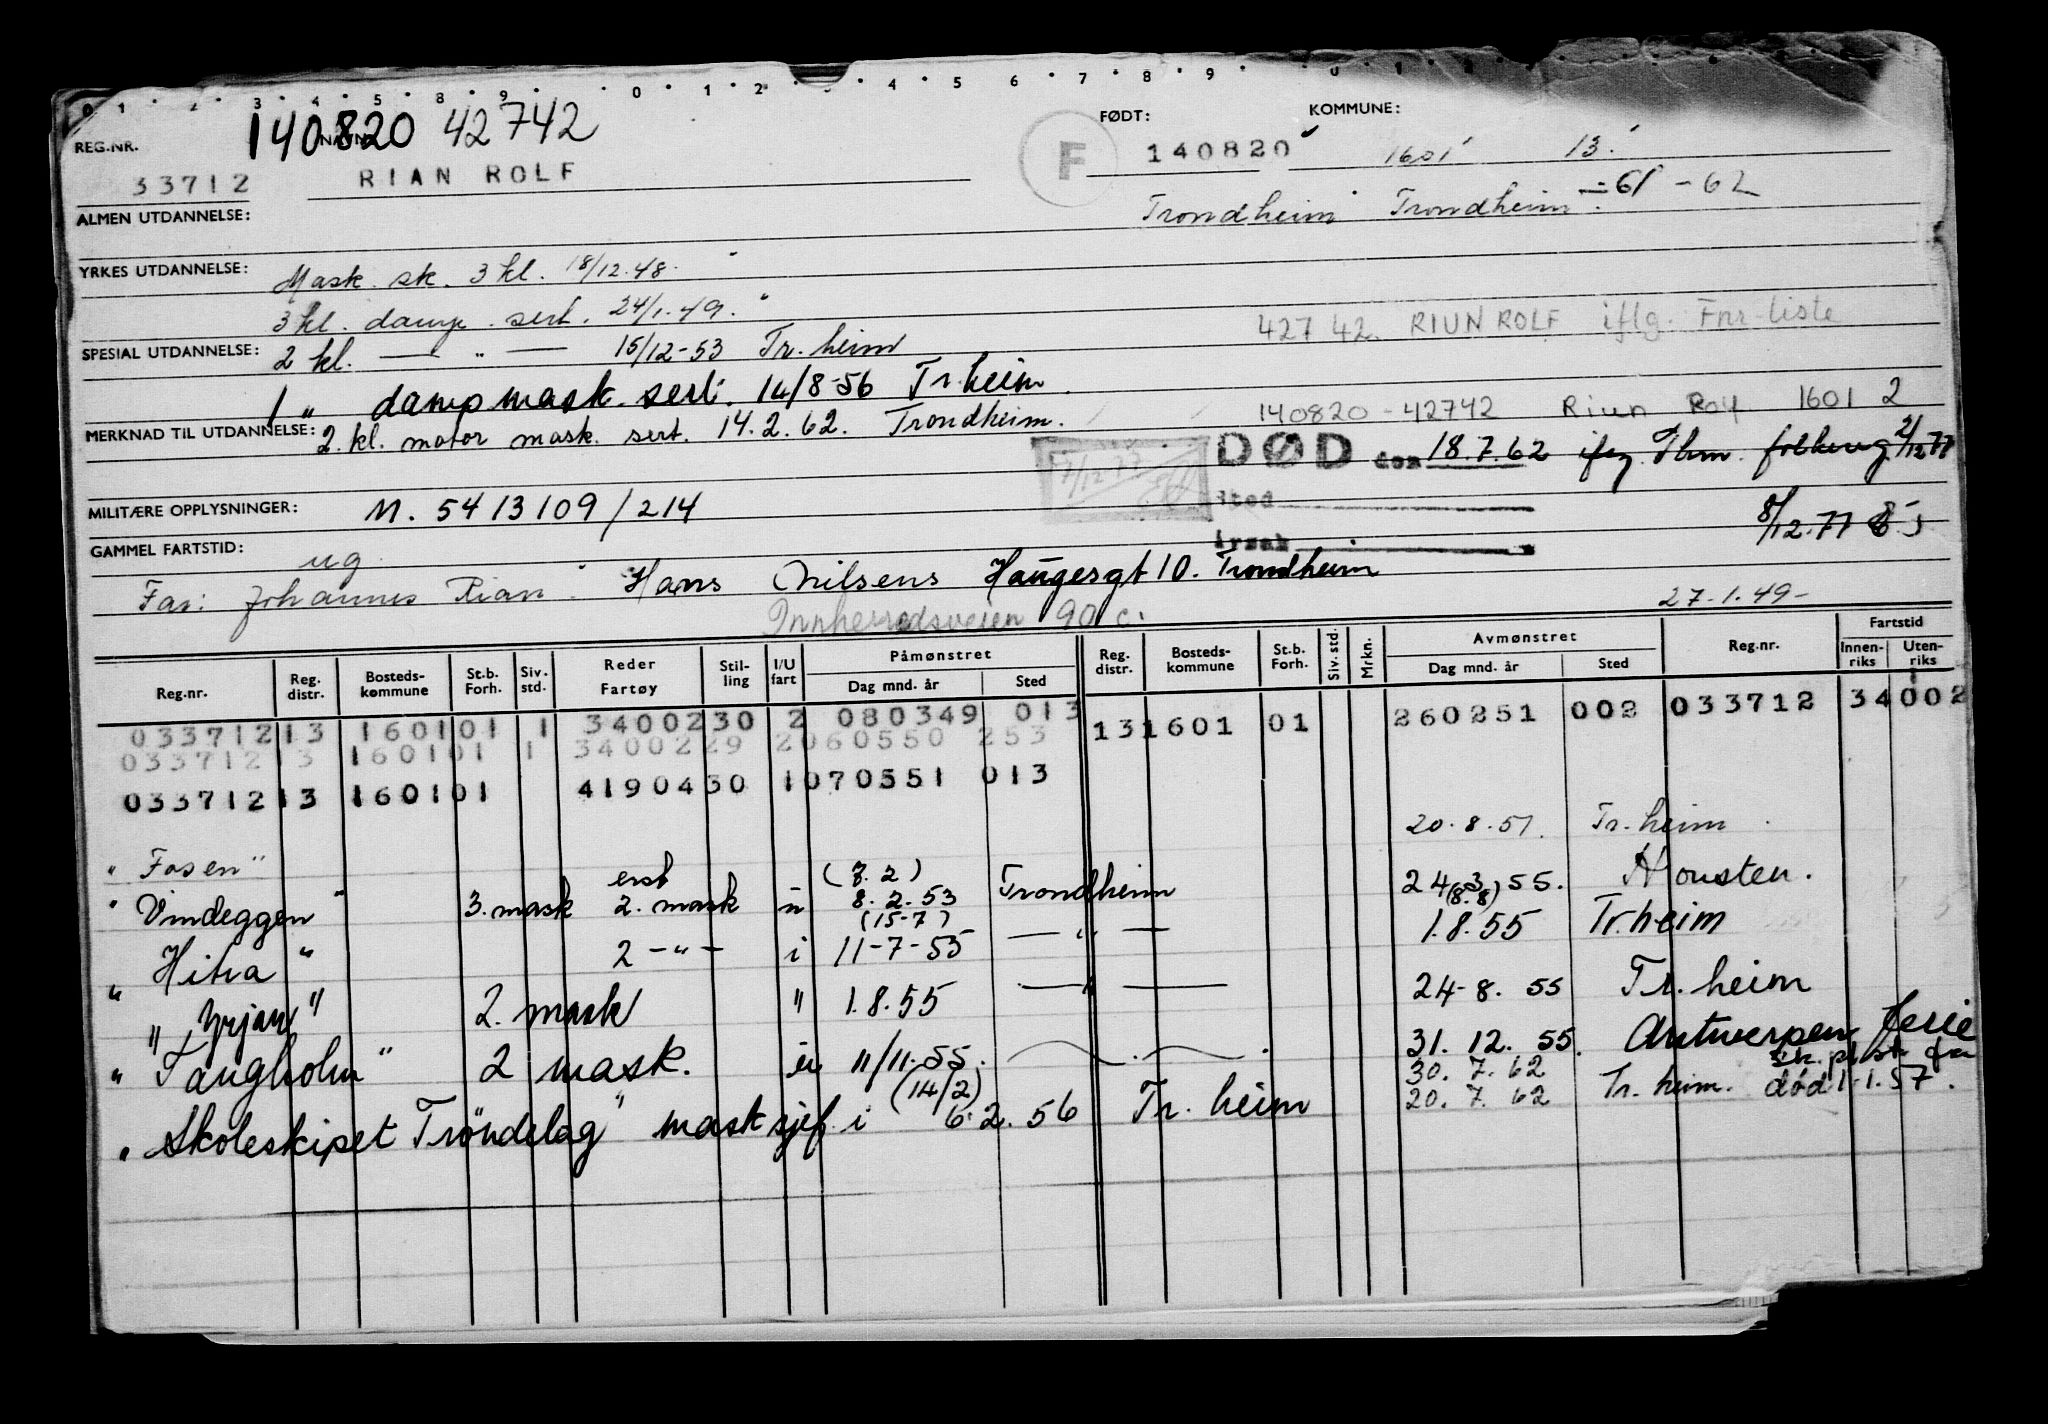 0 1 · 2 · 3 · 4 · 5 · 8 · 9 · · 0 · 1 2 · · 4 · 5 6 · 7 · 8 · 9 · 0 · 1
FØDT: KOMMUNE:
REG.NR. NAVN: 140820 42742 F 140820 1601 13.
33712 RIAN ROLF
Trondheim Trondheim 61 - 62
ALMEN UTDANNELSE:
YRKES UTDANNELSE: Mask. sk. 3 kl. 18/12.48.
3 kl. damp. sert. 24/1.49.
42742. RIUN ROLF iflg. Fnr-liste
SPESIAL UTDANNELSE: 2 kl. — " — 15/12-53 Tr.heim
1 " dampmask. sert. 14/8-56 Tr.heim.
140820-42742 Riun Rolf 1601 2
MERKNAD TIL UTDANNELSE: 2.kl. motor mask. sert. 14.2.62. Trondheim.
DØD den 18.7.62 2/12 77
sted
MILITÆRE OPPLYSNINGER: M. 5413109/214
8/12.77
årsak
GAMMEL FARTSTID: ug
Far: Johannes Rian. Hans Nilsens Haugesgt 10. Trondheim
Innherredsveien 90 c.
27-1.49-
Reg.nr. Reg. distr. Bosteds- kommune St.b. Forh. Siv. std. Reder Fartøy Stil- ling I/U fart Påmønstret Dag mnd. år Sted Reg. distr. Bosteds- kommune St.b. Forh. Siv. std. Mrkn. Avmønstret Dag mnd. år Sted Reg.nr. Fartstid Innen- riks Uten- riks
033712 13 1601 01 1 34002 30 2 080349 013 13 1601 01 260251 002 033712 34 002
033712 13 1601 01 1 34002 29 2 060550 253
033712 13 1601 01 41904 30 1 070551 013
20.8.51. Tr.heim.
"Fosen"
erst (8.2)
"Vindeggen" 3.mask 2. mask u 8.2.53 Trondheim 24.3.55. Housten.
(15-7) (8.8)
"Hitra" 2 -"- i 11-7-55 — " — 1.8.55 Tr.heim
"Yrjar" 2. mask " 1.8.55 — " — 24-8. 55 Tr.heim
"Tangholm" 2 mask. u 11/11-55. 31.12.55. Antwerpen ferie
(14/2) 30.7.62
"Skoleskipet Trøndelag" masksjef. i 6.2.56 Tr.heim 20.7.62 Tr.heim. død 1.1.57.